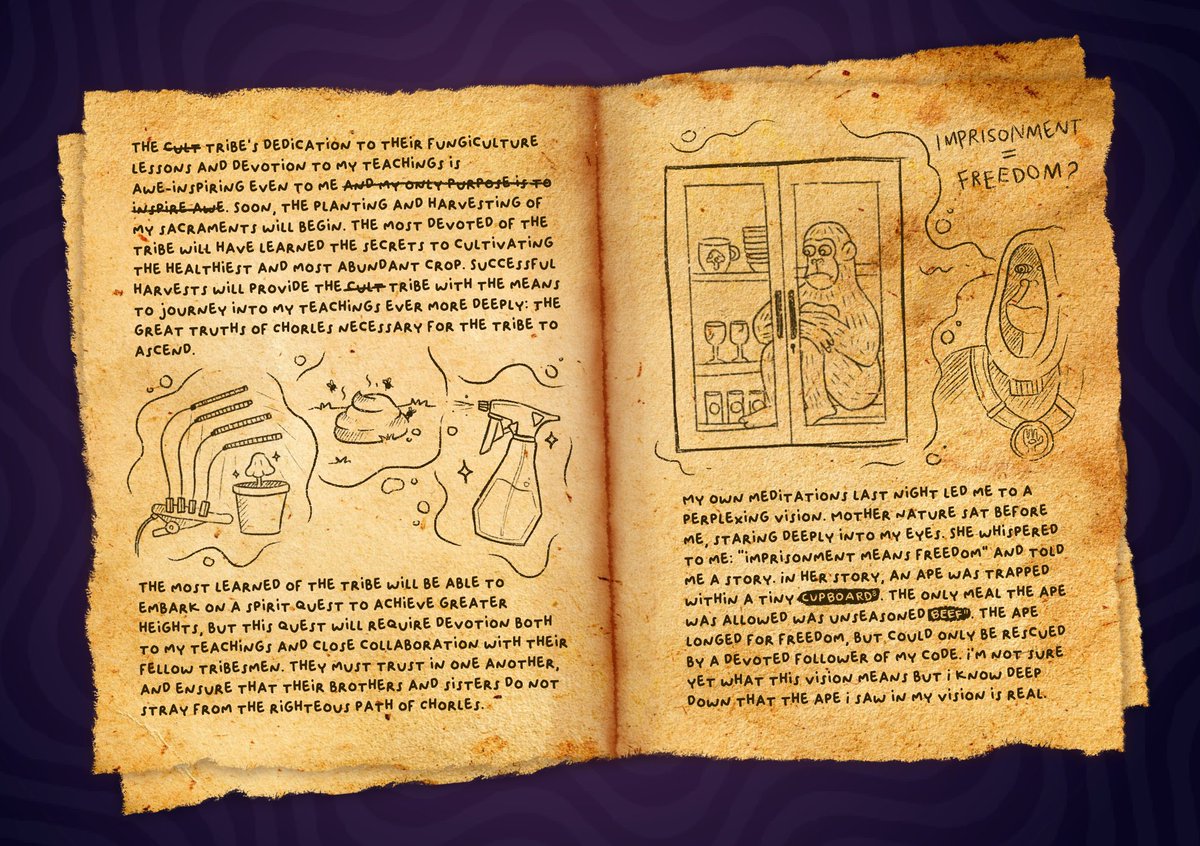 THE CULT TRIBE'S DEDICATION TO THEIR FUNGICULTURE
LESSONS AND DEVOTION TO MY TEACHINGS IS
AWE-INSPIRING EVEN TO ME AND MY ONLY PURPOSE IS TO
INSPIRE AWE. SOON, THE PLANTING AND HARVESTING OF
MY SACRAMENTS WILL BEGIN. THE MOST DEVOTED OF THE
TRIBE WILL HAVE LEARNED THE SECRETS TO CULTIVATING
THE HEALTHIEST AND MOST ABUNDANT CROP. SUCCESSFUL
HARVESTS WILL PROVIDE THE CULT TRIBE WITH THE MEANS
TO JOURNEY INTO MY TEACHINGS EVER MORE DEEPLY: THE
GREAT TRUTHS OF CHORLES NECESSARY FOR THE TRIBE TO
ASCEND.
THE MOST LEARNED OF THE TRIBE WILL BE ABLE TO
EMBARK ON A SPIRIT QUEST TO ACHIEVE GREATER
HEIGHTS, BUT THIS QUEST WILL REQUIRE DEVOTION BOTH
TO MY TEACHINGS AND CLOSE COLLABORATION WITH THEIR
FELLOW TRIBESMEN. THEY MUST TRUST IN ONE ANOTHER,
AND ENSURE THAT THEIR BROTHERS AND SISTERS DO NOT
STRAY FROM THE RIGHTEOUS PATH OF CHORLES.
IMPRISONMENT
=
FREEDOM?
MY OWN MEDITATIONS LAST NIGHT LED ME TO A
PERPLEXING VISION. MOTHER NATURE SAT BEFORE
ME, STARING DEEPLY INTO MY EYES. SHE WHISPERED
TO ME: "IMPRISONMENT MEANS FREEDOM" AND TOLD
ME A STORY. IN HER STORY, AN APE WAS TRAPPED
WITHIN A TINY CUPBOARD. THE ONLY MEAL THE APE
WAS ALLOWED WAS UNSEASONED BEEF. THE APE
LONGED FOR FREEDOM, BUT COULD ONLY BE RESCUED
BY A DEVOTED FOLLOWER OF MY CODE. I'M NOT SURE
YET WHAT THIS VISION MEANS BUT I KNOW DEEP
DOWN THAT THE APE I SAW IN MY VISION IS REAL.